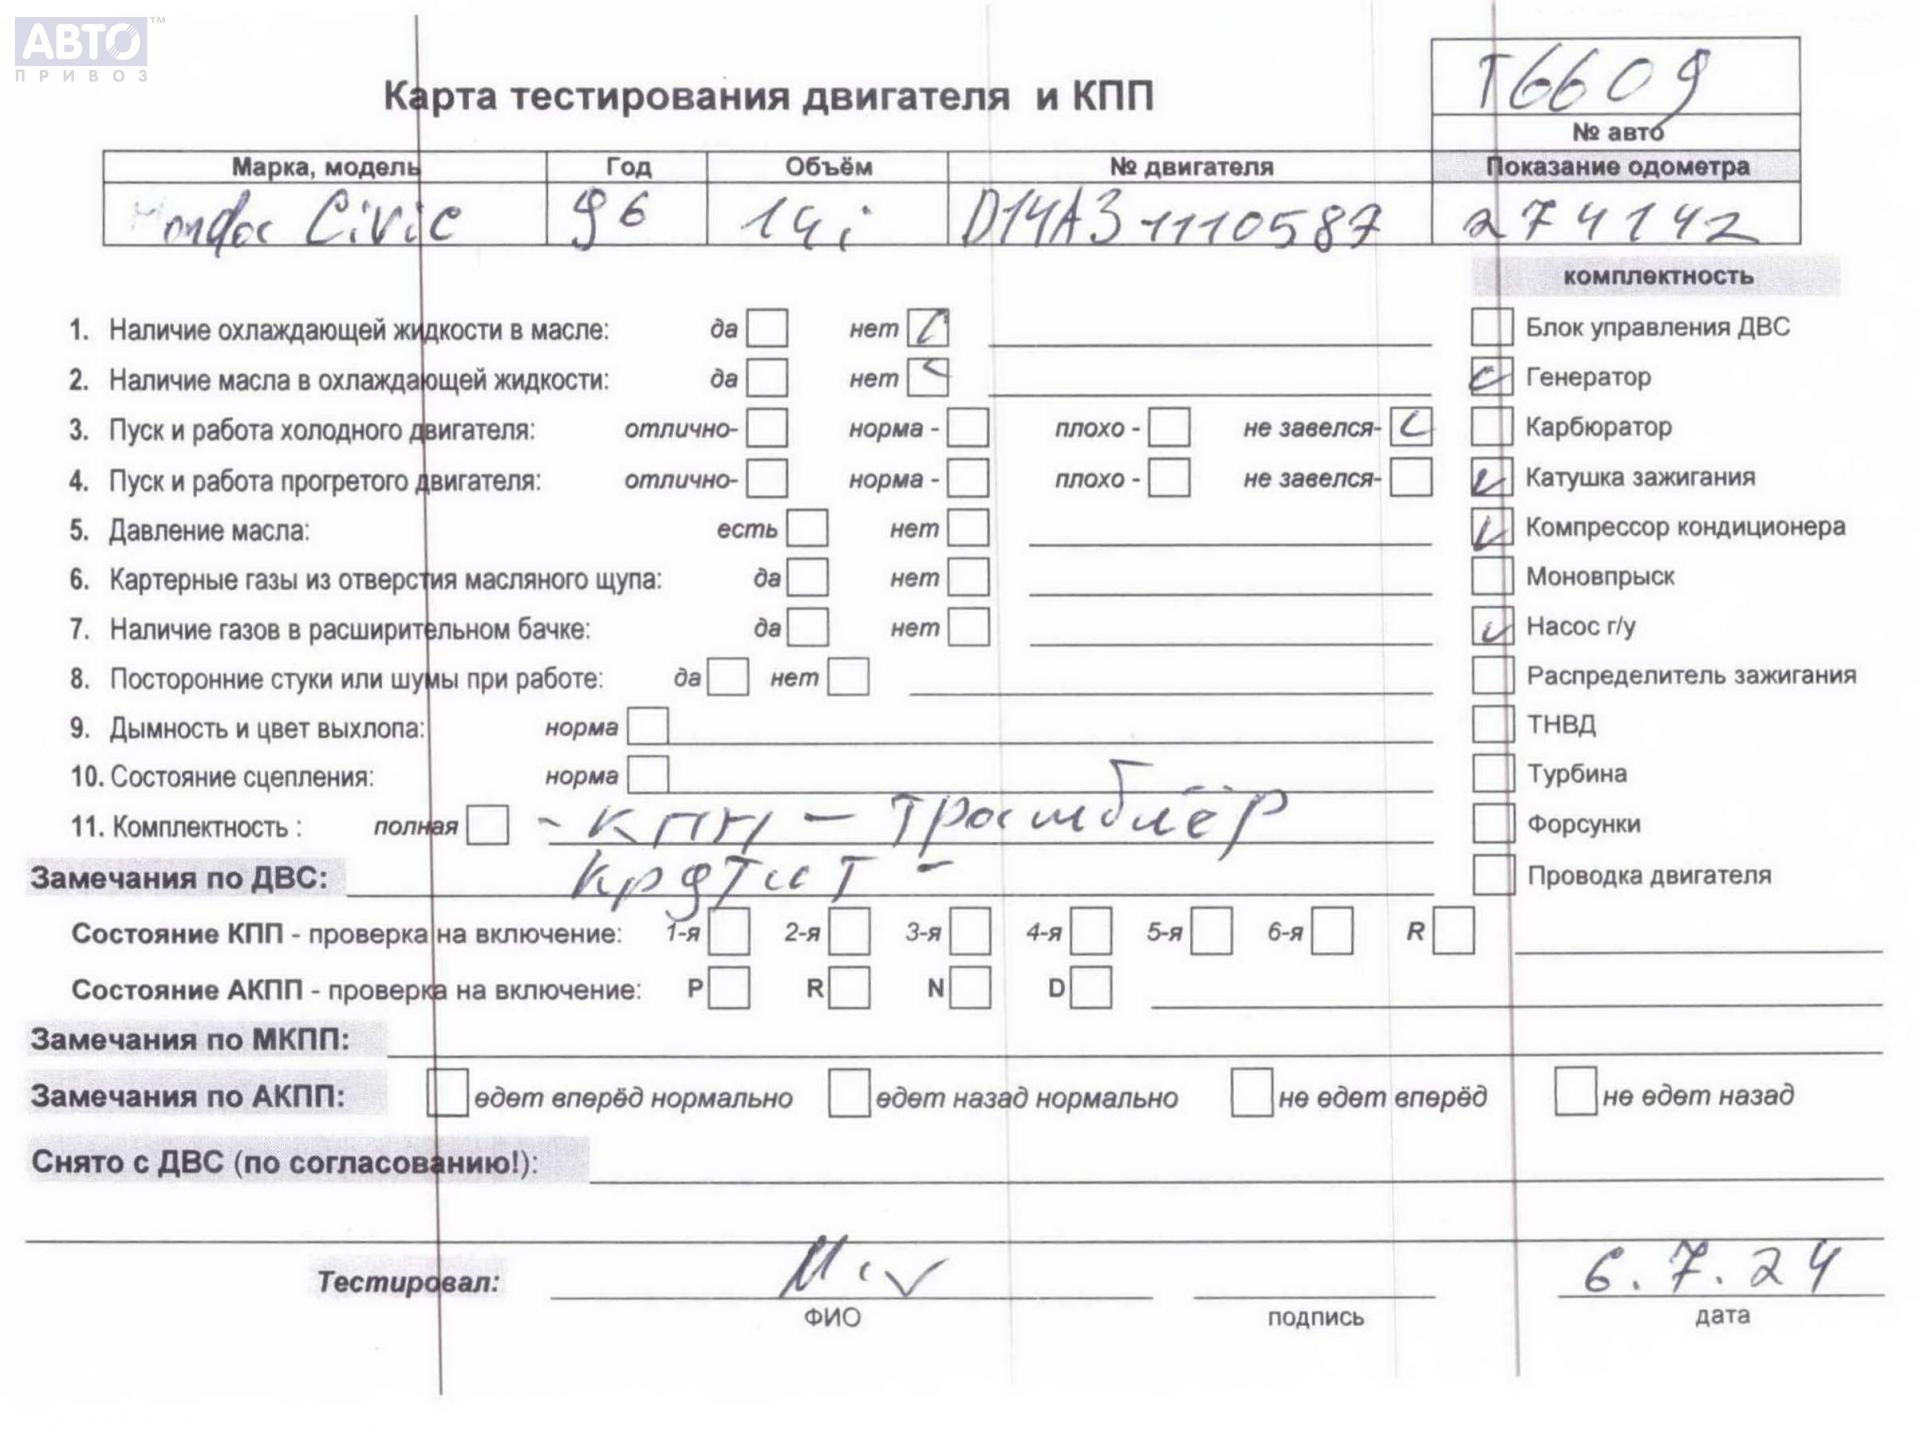 АВТО™
ПРИВОЗ
Т6609
Карта тестирования двигателя и КПП
№ авто
Марка, модель Год Объём № двигателя Показание одометра
Honda Civic 96 14i D14A3 1110587 274142
комплектность
1. Наличие охлаждающей жидкости в масле: да нет Блок управления ДВС
2. Наличие масла в охлаждающей жидкости: да нет Генератор
3. Пуск и работа холодного двигателя: отлично- норма - плохо - не завелся- Карбюратор
4. Пуск и работа прогретого двигателя: отлично- норма - плохо - не завелся- Катушка зажигания
5. Давление масла: есть нет Компрессор кондиционера
6. Картерные газы из отверстия масляного щупа: да нет Моновпрыск
7. Наличие газов в расширительном бачке: да нет Насос г/у
8. Посторонние стуки или шумы при работе: да нет Распределитель зажигания
9. Дымность и цвет выхлопа: норма ТНВД
10. Состояние сцепления: норма Турбина
11. Комплектность : полная - трамблёр Форсунки
Замечания по ДВС: Проводка двигателя
Состояние КПП - проверка на включение: 1-я 2-я 3-я 4-я 5-я 6-я R
Состояние АКПП - проверка на включение: P R N D
Замечания по МКПП:
Замечания по АКПП: едет вперёд нормально едет назад нормально не едет вперёд не едет назад
Снято с ДВС (по согласованию!):
Тестировал: 6.7.24
ФИО подпись дата